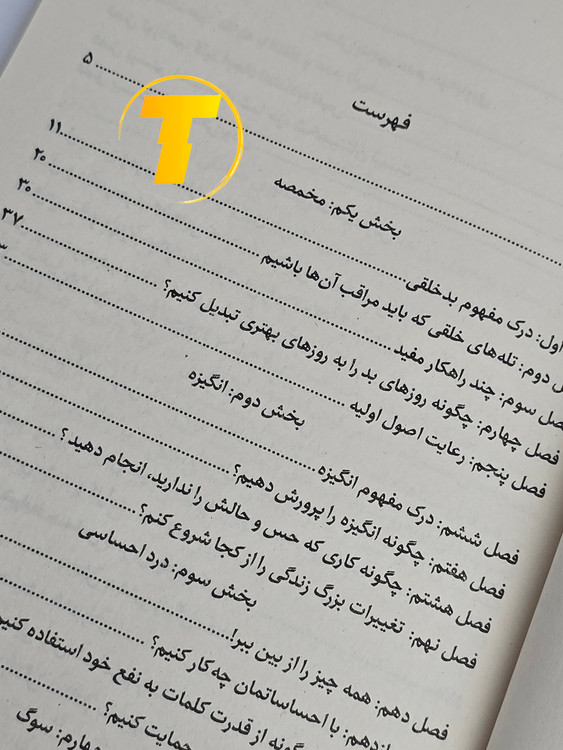 فهرست
۵
بخش یکم: مخمصه
اول: درک مفهوم بدخلقی ۱۱
دوم: تله‌های خلقی که باید مراقب آن‌ها باشیم ۲۰
فصل سوم: چند راهکار مفید ۳۰
فصل چهارم: چگونه روزهای بد را به روزهای بهتری تبدیل کنیم؟ ۳۷
فصل پنجم: رعایت اصول اولیه
بخش دوم: انگیزه
فصل ششم: درک مفهوم انگیزه
فصل هفتم: چگونه انگیزه را پرورش دهیم؟
فصل هشتم: چگونه کاری که حس و حالش را ندارید، انجام دهید؟
فصل نهم: تغییرات بزرگ زندگی را از کجا شروع کنم؟
بخش سوم: درد احساسی
فصل دهم: همه چیز را از بین ببر!
یازدهم: با احساساتمان چه کار کنیم؟
چگونه از قدرت کلمات به نفع خود استفاده کنیم
حمایت کنیم؟
چهارم: سوگ
T